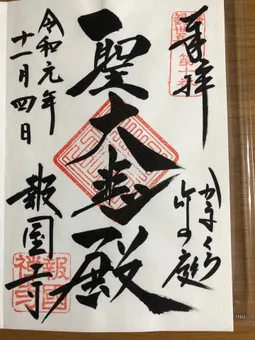 奉拝
かまくら
竹の庭
聖大悲殿
令和元年
十一月四日
報国寺
報国
禅寺